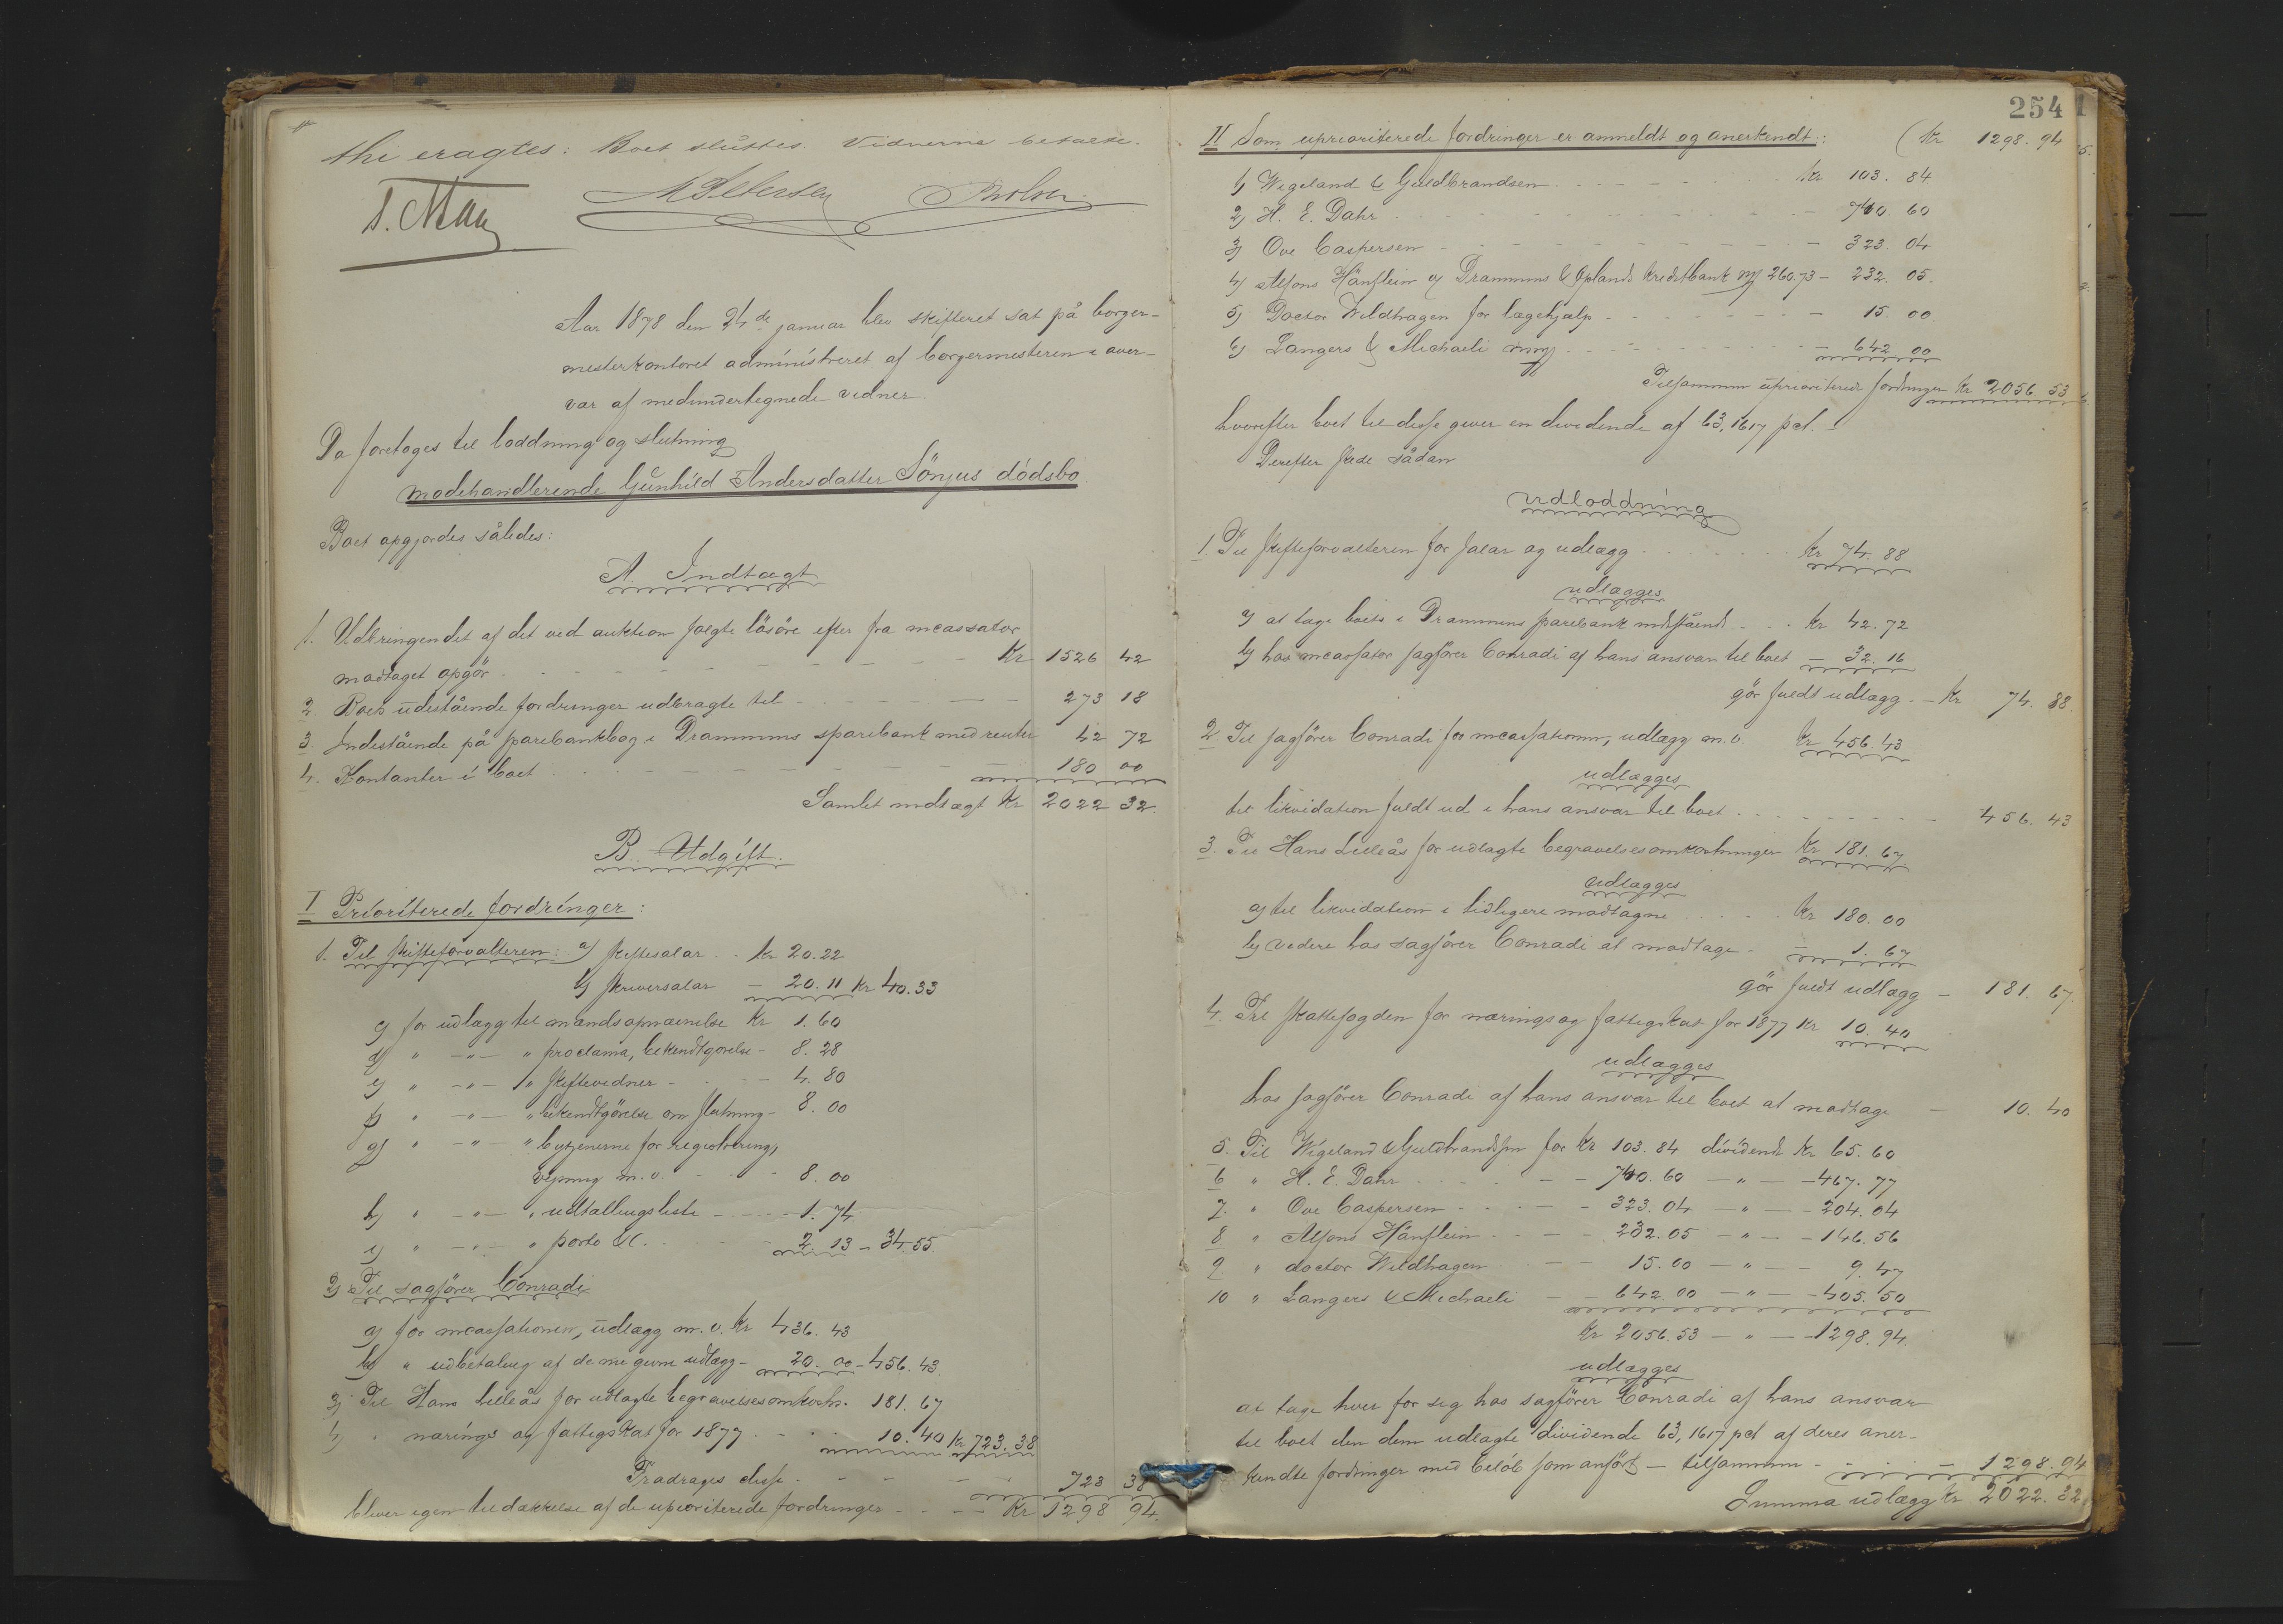 thi eragtes: Boet sluttes. Vidnerne betalte.
Aar 1878 den 24de januar blev skifteret sat på borger-
mesterkontoret administreret af borgermesteren i over-
vær af medundertegnede vidner.
Da foretoges til loddning og slutning
modehandlerende Gunhild Andersdatter Sönjus dödsbo
Boet opgjordes således:
A. Indtægt
1. Udbringendet af det ved auktion solgte lösöre efter fra incassator
modtaget opgör - - - Kr 1526 42
2 Boets udestående fordringer udbragte til - - - 273 18
3 Indestående på sparebankbog i Drammens sparebank med renter 42 72
4. Kontanter i boet - - - 180 00
Samlet indtægt Kr 2022 32.
B. Udgift.
I Prioriterede fordringer:
1. Til skifteforvalteren: a) skiftesalar . . kr 20.22
b) skriversalar — 20.11 Kr 40.33
c) for udlæg til mandsopnævnelse Kr 1.60
d) " —"— " proclama, bekendtgörelse - 8.28
e) " —"— " skiftevidner - - 4.80
f) " —"— " bekendtgörelse om slutning - 8.00
g) " —"— " bytjenerne for registrering,
m.v. - - - 8.00
h) " —"— " udtallingsliste - - - 1.74
i) " —"— " porto &c. - - 2.13 - 34.55
2) Til sagförer Conradi
a) for incassationen, udlægg m.v. Kr 436.43
b) " udbetaling af de nu givne udlægg - 20.00 - 456.43.
3) Til Hans Lilleås for udlagte begravelsesomkostn. 181.67
4) " nærings og fattigskat for 1877 . . 10.40 Kr 723.38
Fradrages disse - - - 723 38
bliver igen til dækkelse af de uprioriterede fordringer - - - Kr 1298 94.
254
II Som uprioriterede fordringer er anmeldt og anerkendt: (Kr 1298.94
1) Wigeland & Guldbrandsen - - - Kr 103.84
2) H. E. Dahr - - - 740.60
3) Ove Caspersen - - - 323.04
4) Alfons Hänflein og Drammens & Oplands kreditbank 260.73 - 232.05.
5) Doctor Wildhagen for lægehjælp - - - 15.00
6) Langers & Michaeli - - - 642.00
Tilsammen uprioriterede fordringer Kr 2056.53
hvorefter boet til disse giver en dividende af 63,1617 pct.
Derefter skede sådan
udloddning
1. Til skifteforvalteren for salar og udlægg . . . Kr 74.88
udlægges
a) at tage boets i Drammens sparebank indestående . . . Kr 42.72
b) hos incassator sagförer Conradi af hans ansvar til boet — 32.16
gör fuldt udlægg - Kr 74.88.
2 Til sagförer Conradi for incassationen, udlægg m.v. Kr 456.43
udlægges
til likvidation fuldt ud i hans ansvar til boet - - - 456.43
3. Til Hans Lilleås for udlagte begravelsesomkostninger Kr 181.67.
udlægges
a) til likvidation i tidligere modtagne . . . Kr 180.00
b) videre hos sagförer Conradi at modtage - — 1.67
gör fuldt udlægg — 181.67.
4. Til skattefogden for nærings og fattigskat for 1877 Kr 10.40
udlægges
hos sagförer Conradi af hans ansvar til boet at modtage — 10.40
5. Til Wigeland & Guldbrandsen for Kr 103.84 dividende Kr 65.60
6 " H. E. Dahr - - - 740.60 — " — - 467.77
7. " Ove Caspersen - - - 323.04 — " — - 204.04
8 " Alfons Hänflein - - - 232.05 — " — - 146.56
9. " doctor Wildhagen - - - 15.00 — " — - 9.47
10 " Langers & Michaeli - - 642.00 — " — - 405.50
Kr 2056.53 — " — - 1298.94.
udlægges
at tage hver for sig hos sagförer Conradi af hans ansvar
til boet den dem udlagte dividende 63,1617 pct af deres aner-
kendte fordringer med belöb som anfört — tilsammen - - - 1298.94
Summa udlægg Kr 2022.32